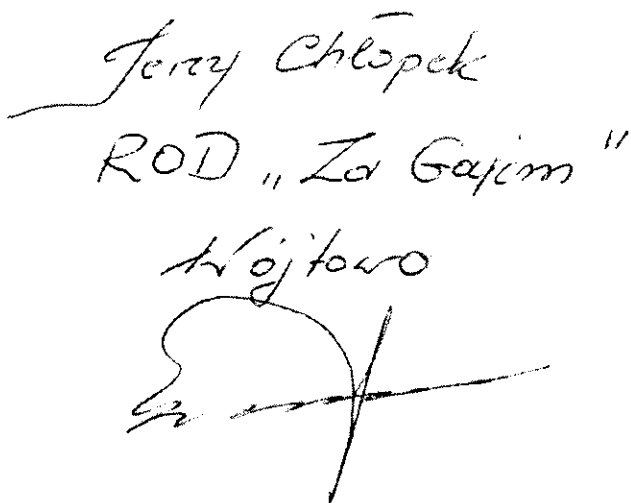 Jerzy Chłopek
ROD „Za Gajem"
Wójtowo